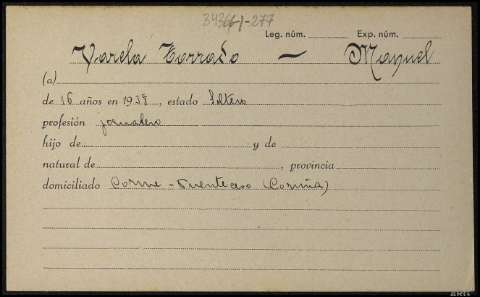 Leg. núm. Exp. núm.
Varela Torrado — Manuel
(a)
de 16 años en 1938, estado Soltero
profesión jornalero
hijo de y de
natural de , provincia
domiciliado Corme - Puenteceso (Coruña)